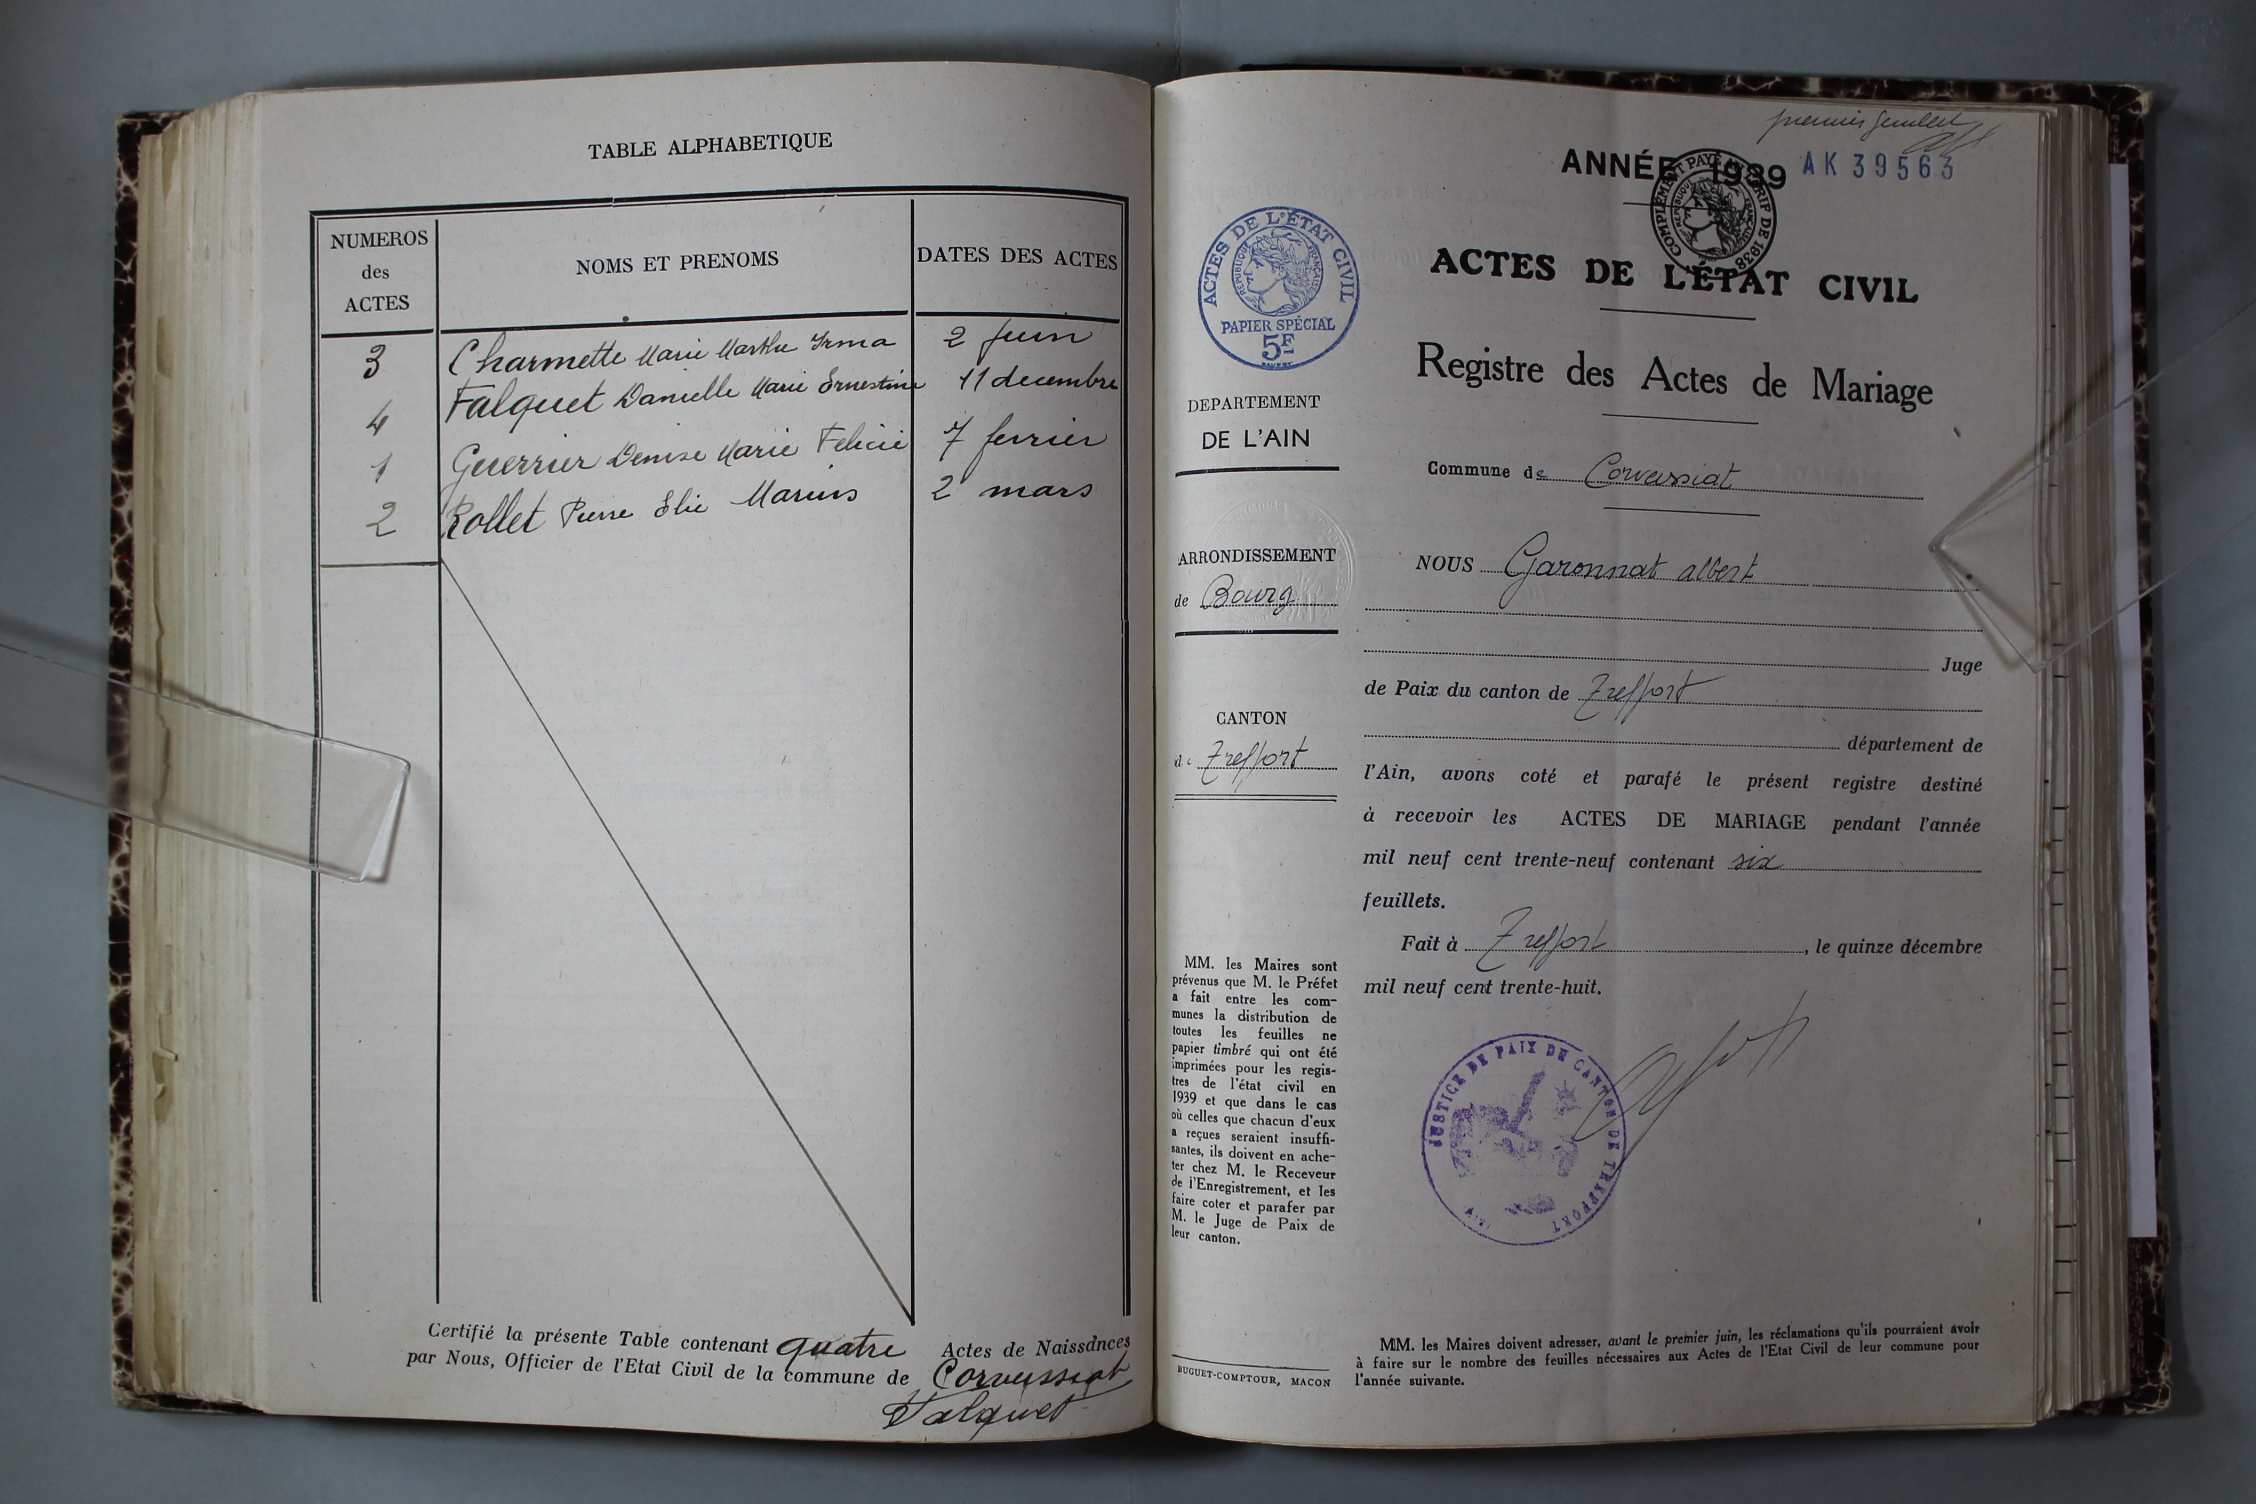 TABLE ALPHABETIQUE
NUMEROS
des
ACTES
NOMS ET PRENOMS
DATES DES ACTES
3 Charmette Marie Marthe Irma 2 Juin
4 Falquet Danielle Marie Ernestine 11 decembre
1 Guerrier Denise Marie Felicie 7 ferrier
2 Rollet Pierre Elie Marius 2 mars
Certifié la présente Table contenant quatre Actes de Naissances
par Nous, Officier de l'Etat Civil de la commune de Corveissiat
Falquet
premier feuillet
ANNÉE 1939 AK 39563
COMPLÉMENT PAYÉ AN TARIF DE 1938
RÉPUBLIQUE FRANÇAISE
ACTES DE L'ÉTAT CIVIL
RÉPUBLIQUE FRANÇAISE
PAPIER SPÉCIAL
5F
DEPARTEMENT
DE L'AIN
ARRONDISSEMENT
de Bourg
CANTON
de Treffort
MM. les Maires sont
prévenus que M. le Préfet
a fait entre les com-
munes la distribution de
toutes les feuilles ne
papier timbré qui ont été
imprimées pour les regis-
tres de l'état civil en
1939 et que dans le cas
où celles que chacun d'eux
a reçues seraient insuffi-
santes, ils doivent en ache-
ter chez M. le Receveur
de l'Enregistrement, et les
faire coter et parafer par
M. le Juge de Paix de
leur canton.
BUGUET-COMPTOUR, MACON
ACTES DE L'ÉTAT CIVIL
Registre des Actes de Mariage
Commune de Corveissiat
NOUS Garonnat albert
Juge
de Paix du canton de Treffort
département de
l'Ain, avons coté et parafé le présent registre destiné
à recevoir les ACTES DE MARIAGE pendant l'année
mil neuf cent trente-neuf contenant six
feuillets.
Fait à Treffort, le quinze décembre
mil neuf cent trente-huit.
JUSTICE DE PAIX DU CANTON DE TREFFORT
MM. les Maires doivent adresser, avant le premier juin, les réclamations qu'ils pourraient avoir
à faire sur le nombre des feuilles nécessaires aux Actes de l'Etat Civil de leur commune pour
l'année suivante.